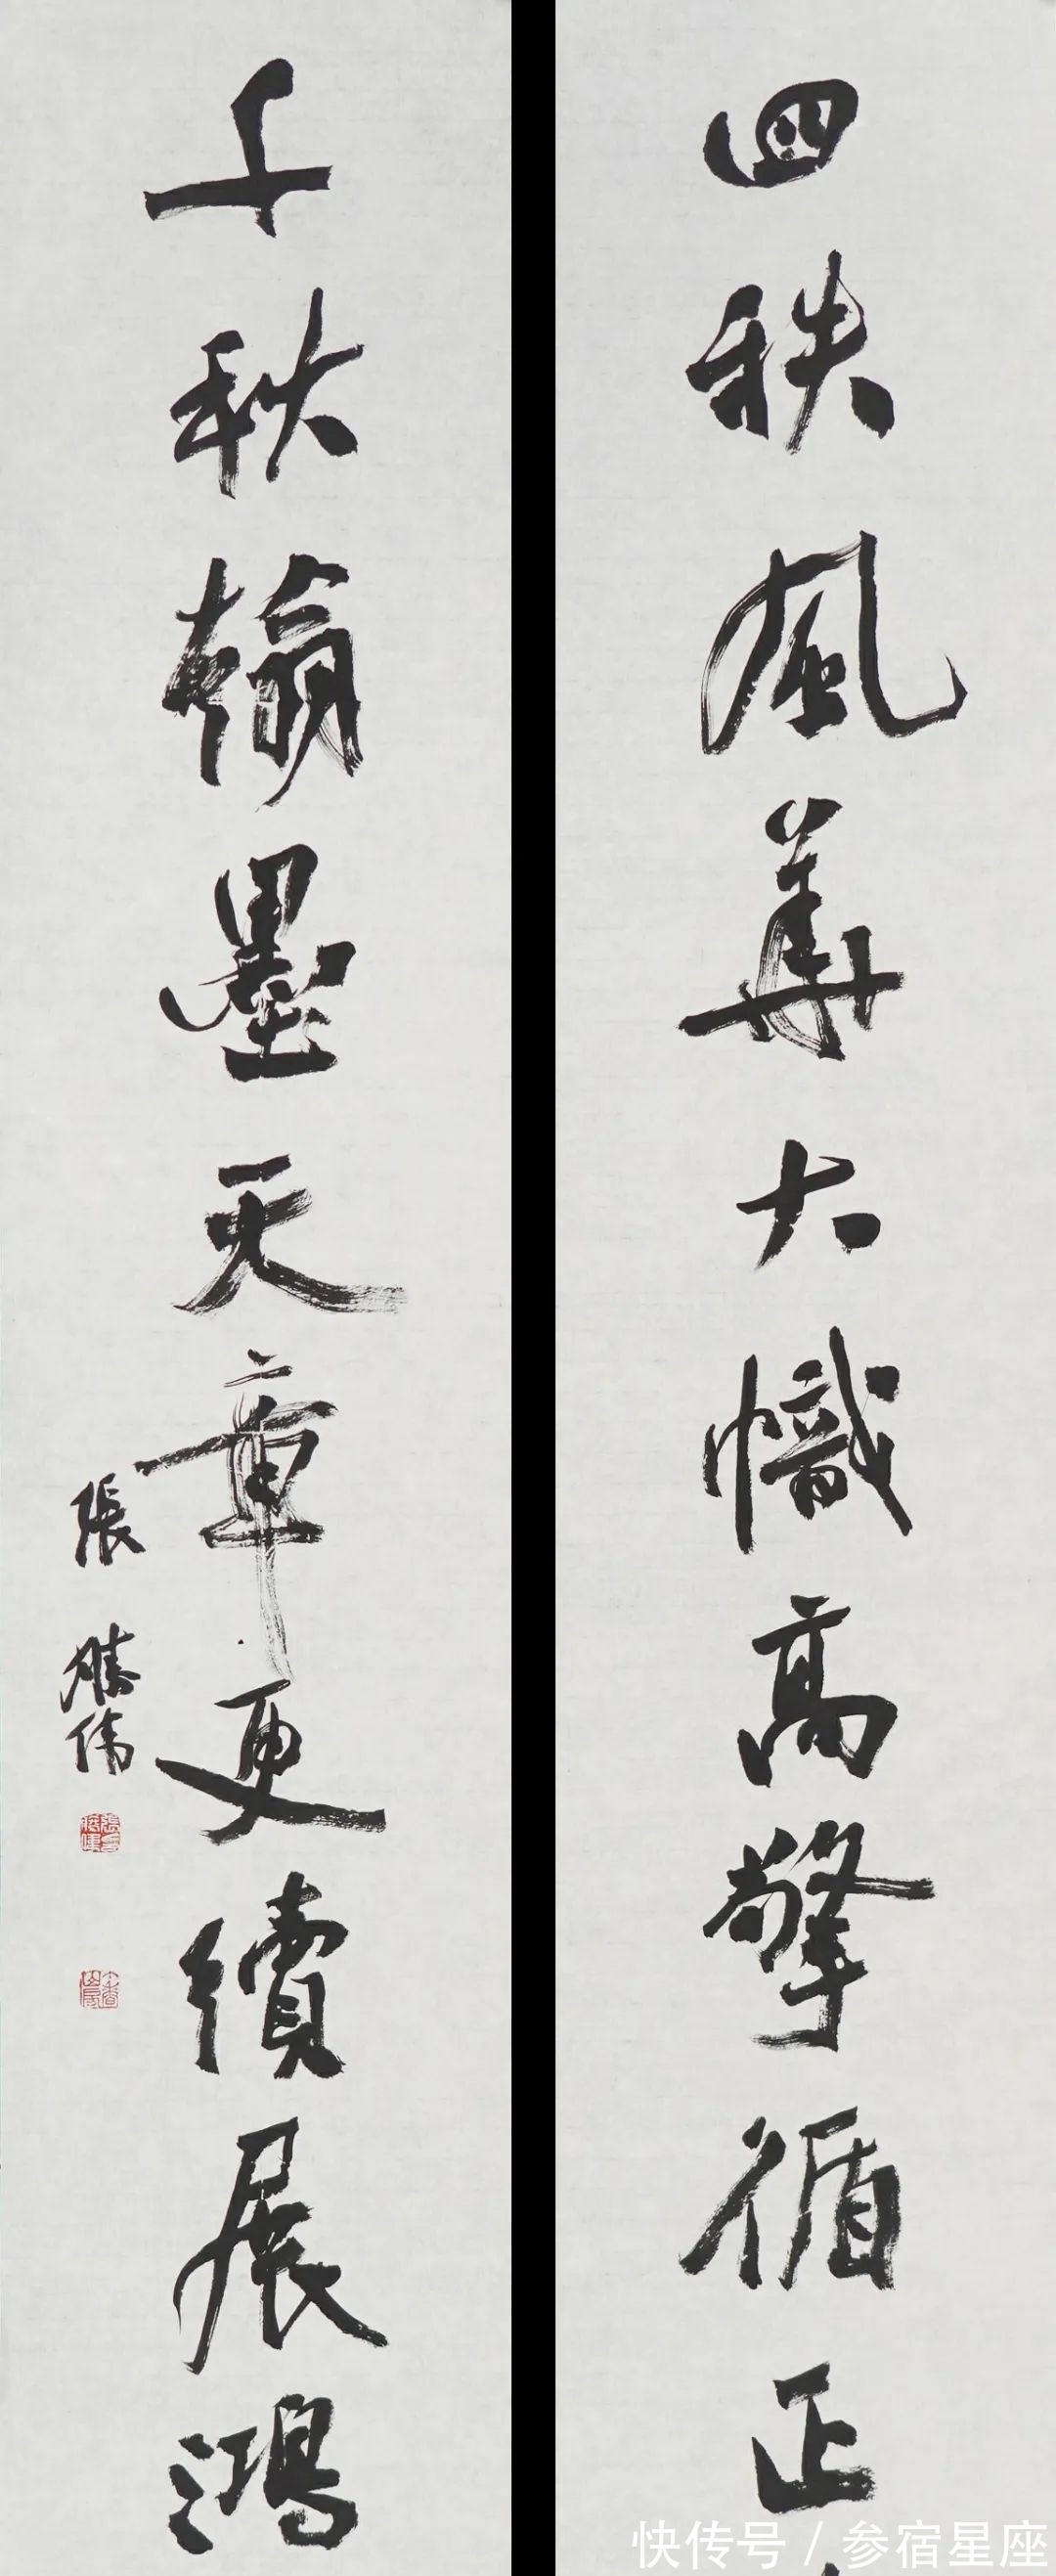 四秩風華大幟高擎循正
千秋翰墨天章更續展鴻
張勝伟
快传号 / 参宿星座